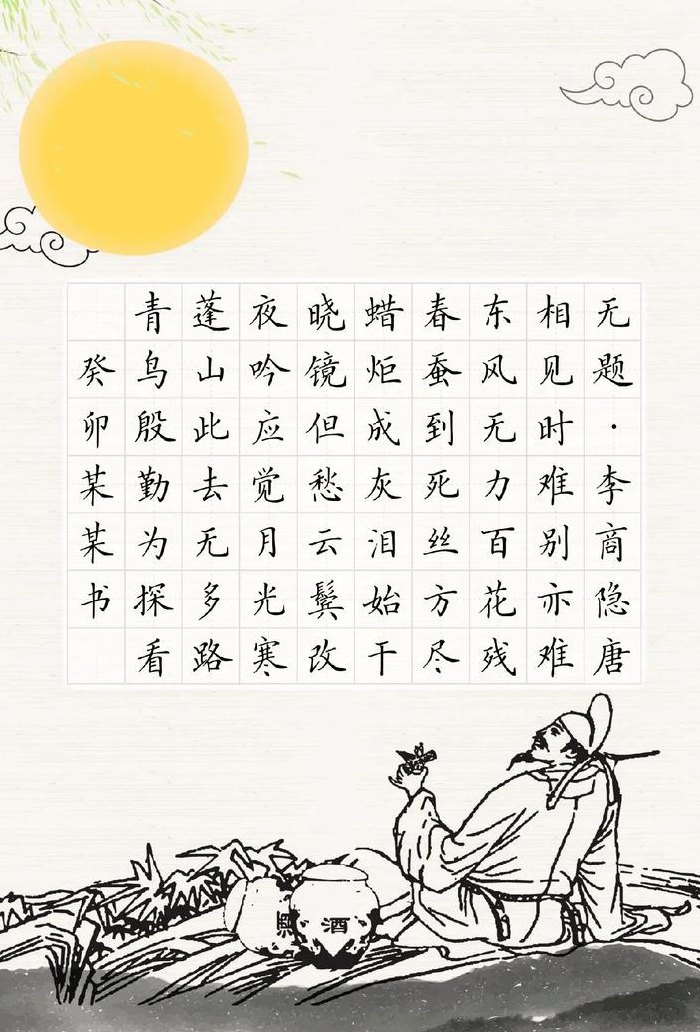 无题·李商隐唐
相见时难别亦难
东风无力百花残
春蚕到死丝方尽
蜡炬成灰泪始干
晓镜但愁云鬓改
夜吟应觉月光寒
蓬山此去无多路
青鸟殷勤为探看
癸卯某某书
酒